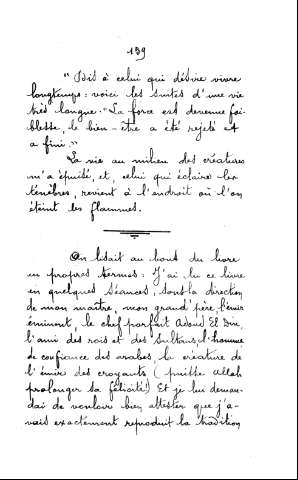 139
"Dis à celui qui désire vivre
longtemps : voici les suites d'une vie
très longue. "La force est devenue fai-
blesse, le bien-être a été rejeté et
a fini."
La vie au milieu des créatures
m'a épuisé, et, celui qui éclaire les
ténèbres, revient à l'endroit où l'on
éteint les flammes.
On lisait au bout du livre
en propres termes : J'ai lu ce livre
en quelques séances, sous la direction
de mon maître, mon grand'père, l'émir
éminent, le chef parfait Adoud El Din,
l'ami des rois et des Sultans, l'homme
de confiance des arabes, la créature de
l'émir des croyants (puisse Allah
prolonger sa félicité!) Et je lui deman-
dai de vouloir bien attester que j'a-
vais exactement reproduit la tradition